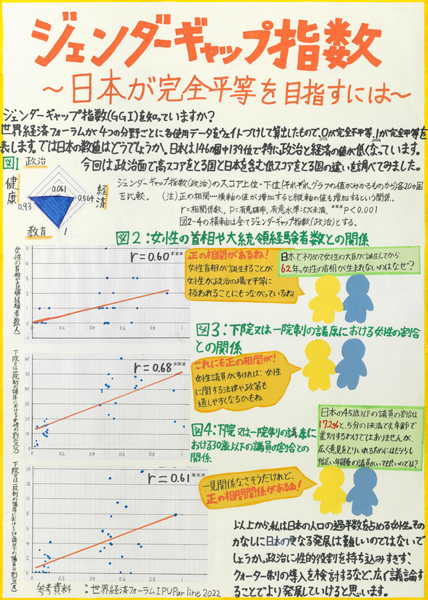 ジェンダーギャップ指数
〜日本が完全平等を目指すには〜
ジェンダーギャップ指数(GGI)を知っていますか?
世界経済フォーラムが4つの分野ごとに各使用データをウェイトづけして算出したもので、0が完全不平等、1が完全平等を
表します。では日本の数値はどうでしょうか。日本は146カ国中139位で特に政治と経済の値が低くなっています。
今回は政治面で高スコアをとる国と日本を含む低スコアをとる国の違いを調べてみました。
図1
政治
健康
経済
教育
0.061
0.564
0.93
1
ジェンダーギャップ指数(政治)のスコア上位・下位
を比較。(注)正の相関…横軸の値が増加すると縦軸の値も増加するという関係。
r=相関係数、P=有意確率、有意水準:5%未満、***P<0.001
図2-4の横軸は全てジェンダーギャップ指数(政治)とする。
図2:女性の首相や大統領経験者数との関係
女性の首相や大統領経験者数(人)
r=0.60***
正の相関がある!
女性首相が誕生することが
女性が政治の場で平等に
扱われることにもつながっているね
日本で初めて女性の大臣が誕生してから
62年。女性の首相が生まれないのはなぜ?
図3:下院又は一院制の議席における女性の割合
との関係
r=0.68***
これにも正の相関が!
女性議員が多ければ、女性
に関する法律や政策も
通しやすくなるかもね
図4:下院又は一院制の議席に
おける30歳以下の議員の割合との
関係
r=0.61***
日本の45歳以下の議員の割合は
広く意見をとりいれるためにはもう少し
幅広い年齢層の議員がいても良いのでは?
一見関係なさそうだけれど、
正の相関関係がある!
以上から、私は日本の人口の過半数を占める女性、その
力なしに日本の更なる発展は難しいのではないで
しょうか。政治に性的役割を持ち込みすぎず、
クォーター制の導入を検討するなど、広く議論す
ることでより発展していけると思います。
参考資料:世界経済フォーラム IPU Parline 2022